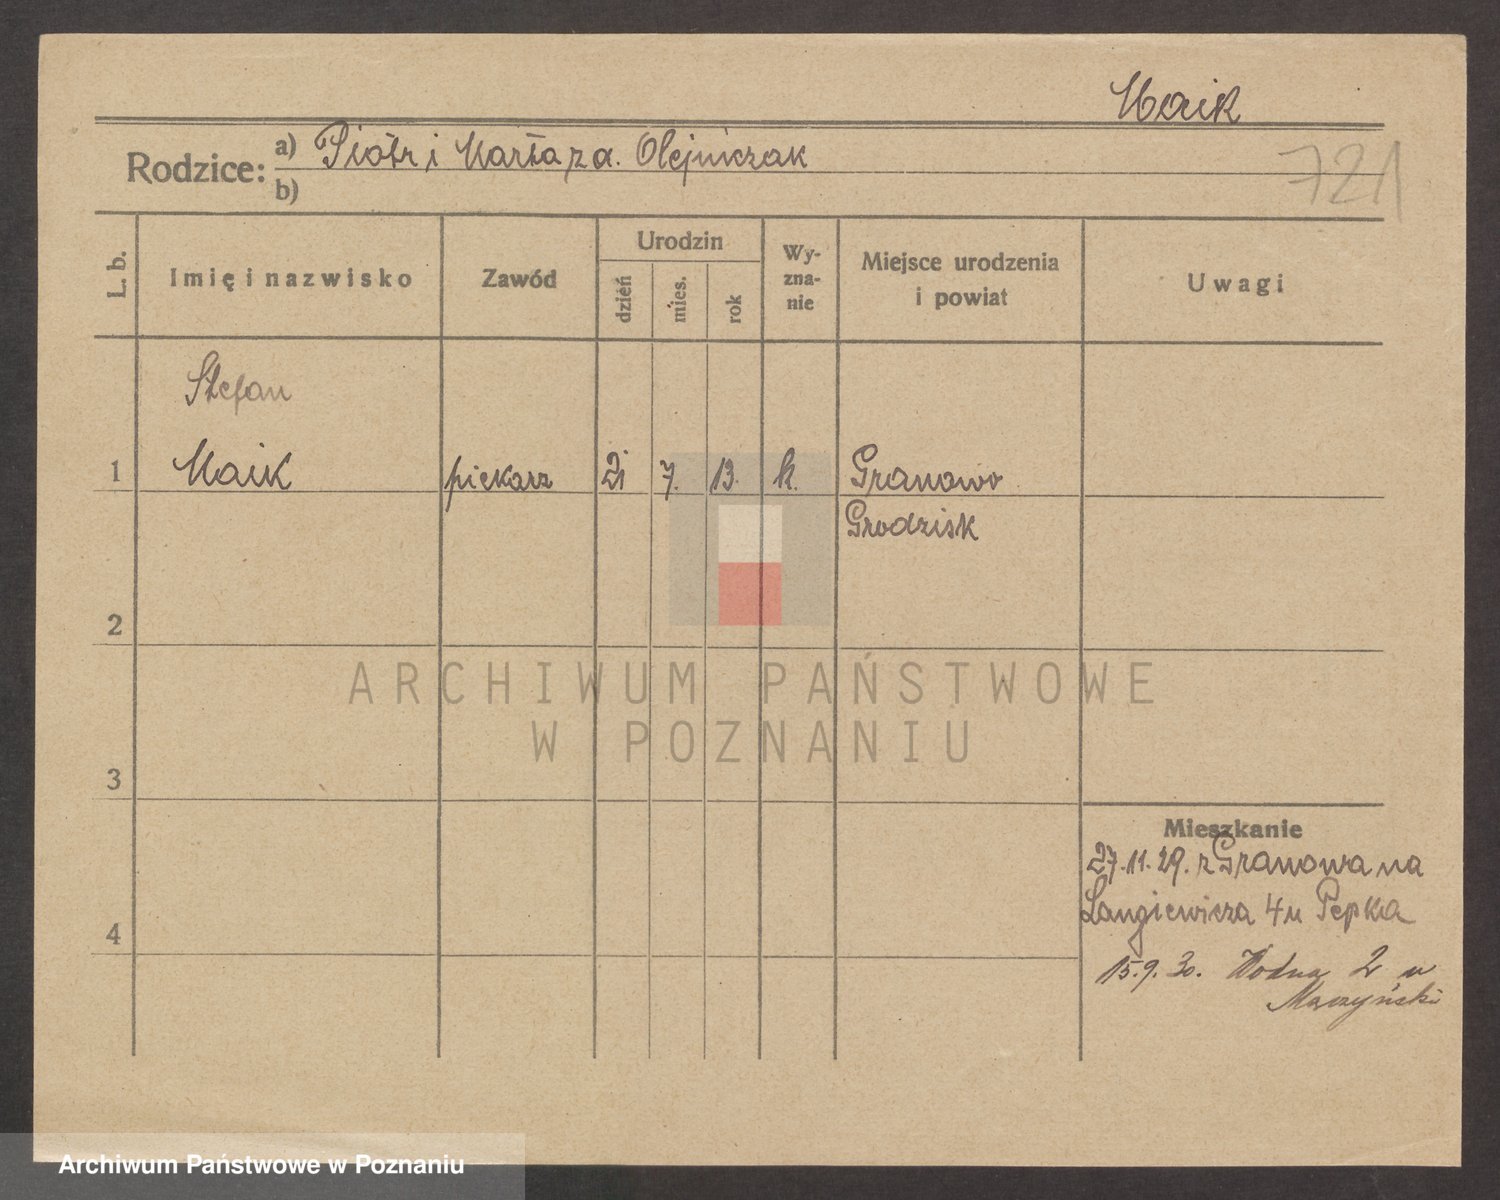 Maik
Rodzice: a) Piotr i Marta z d. Olejniczak
b)
721
L. b.
Imię i nazwisko
Zawód
Urodzin
dzień
mies.
rok
Wy-
zna-
nie
Miejsce urodzenia
i powiat
Uwagi
Stefan
1 Maik piekarz 21 7. 13. k. Granowo
Grodzisk
2
3
4
Mieszkanie
27.11.29. z Granowa na
Langiewicza 4 u Pepka
15.9.30. Wodna 2 u
ARCHIWUM PAŃSTWOWE
W POZNANIU
Archiwum Państwowe w Poznaniu